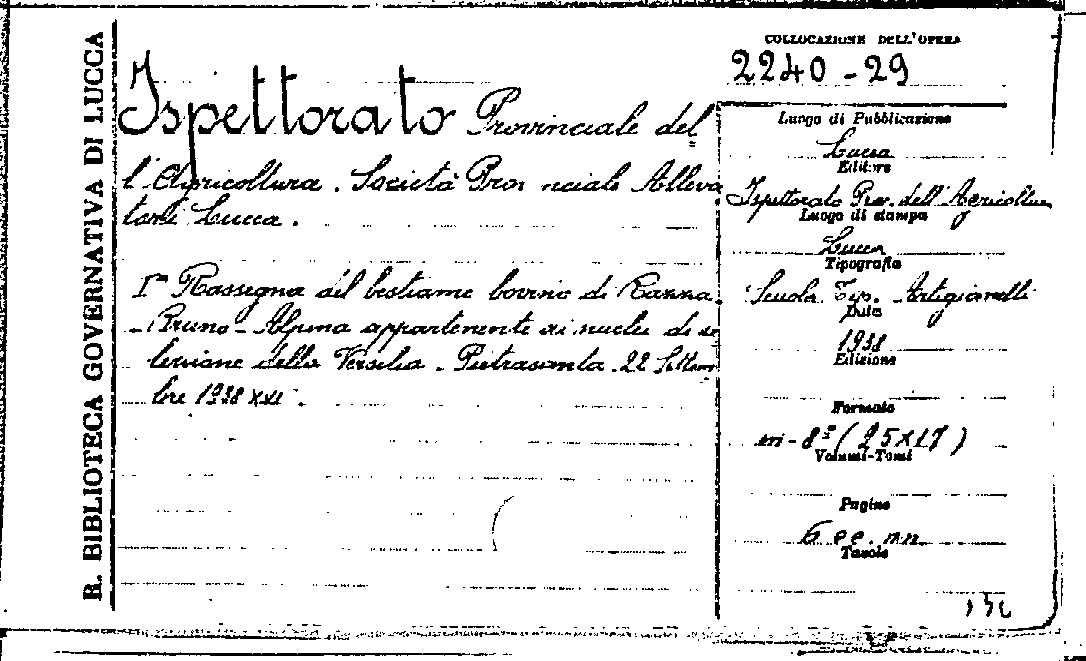 R. BIBLIOTECA GOVERNATIVA DI LUCCA
Ispettorato Provinciale del
l'Agricoltura. Società Provinciale Alleva
tori Lucca.
Iª Rassegna del bestiame bovino di Razza
-Bruno-Alpina appartenente ai nuclei di se
lezione della Versilia. Pietrasanta. 22 Settem
bre 1938 XVI.
COLLOCAZIONE DELL'OPERA
2240-29
Luogo di Pubblicazione
Lucca
Editore
Ispettorato Prov. dell'Agricoltura
Luogo di stampa
Lucca
Tipografia
Scuola Tip. Artigianelli
Data
1938
Edizione
Formato
in-8º (25x17)
Volumi-Tomi
Pagine
6 cc. nn.
Tavole